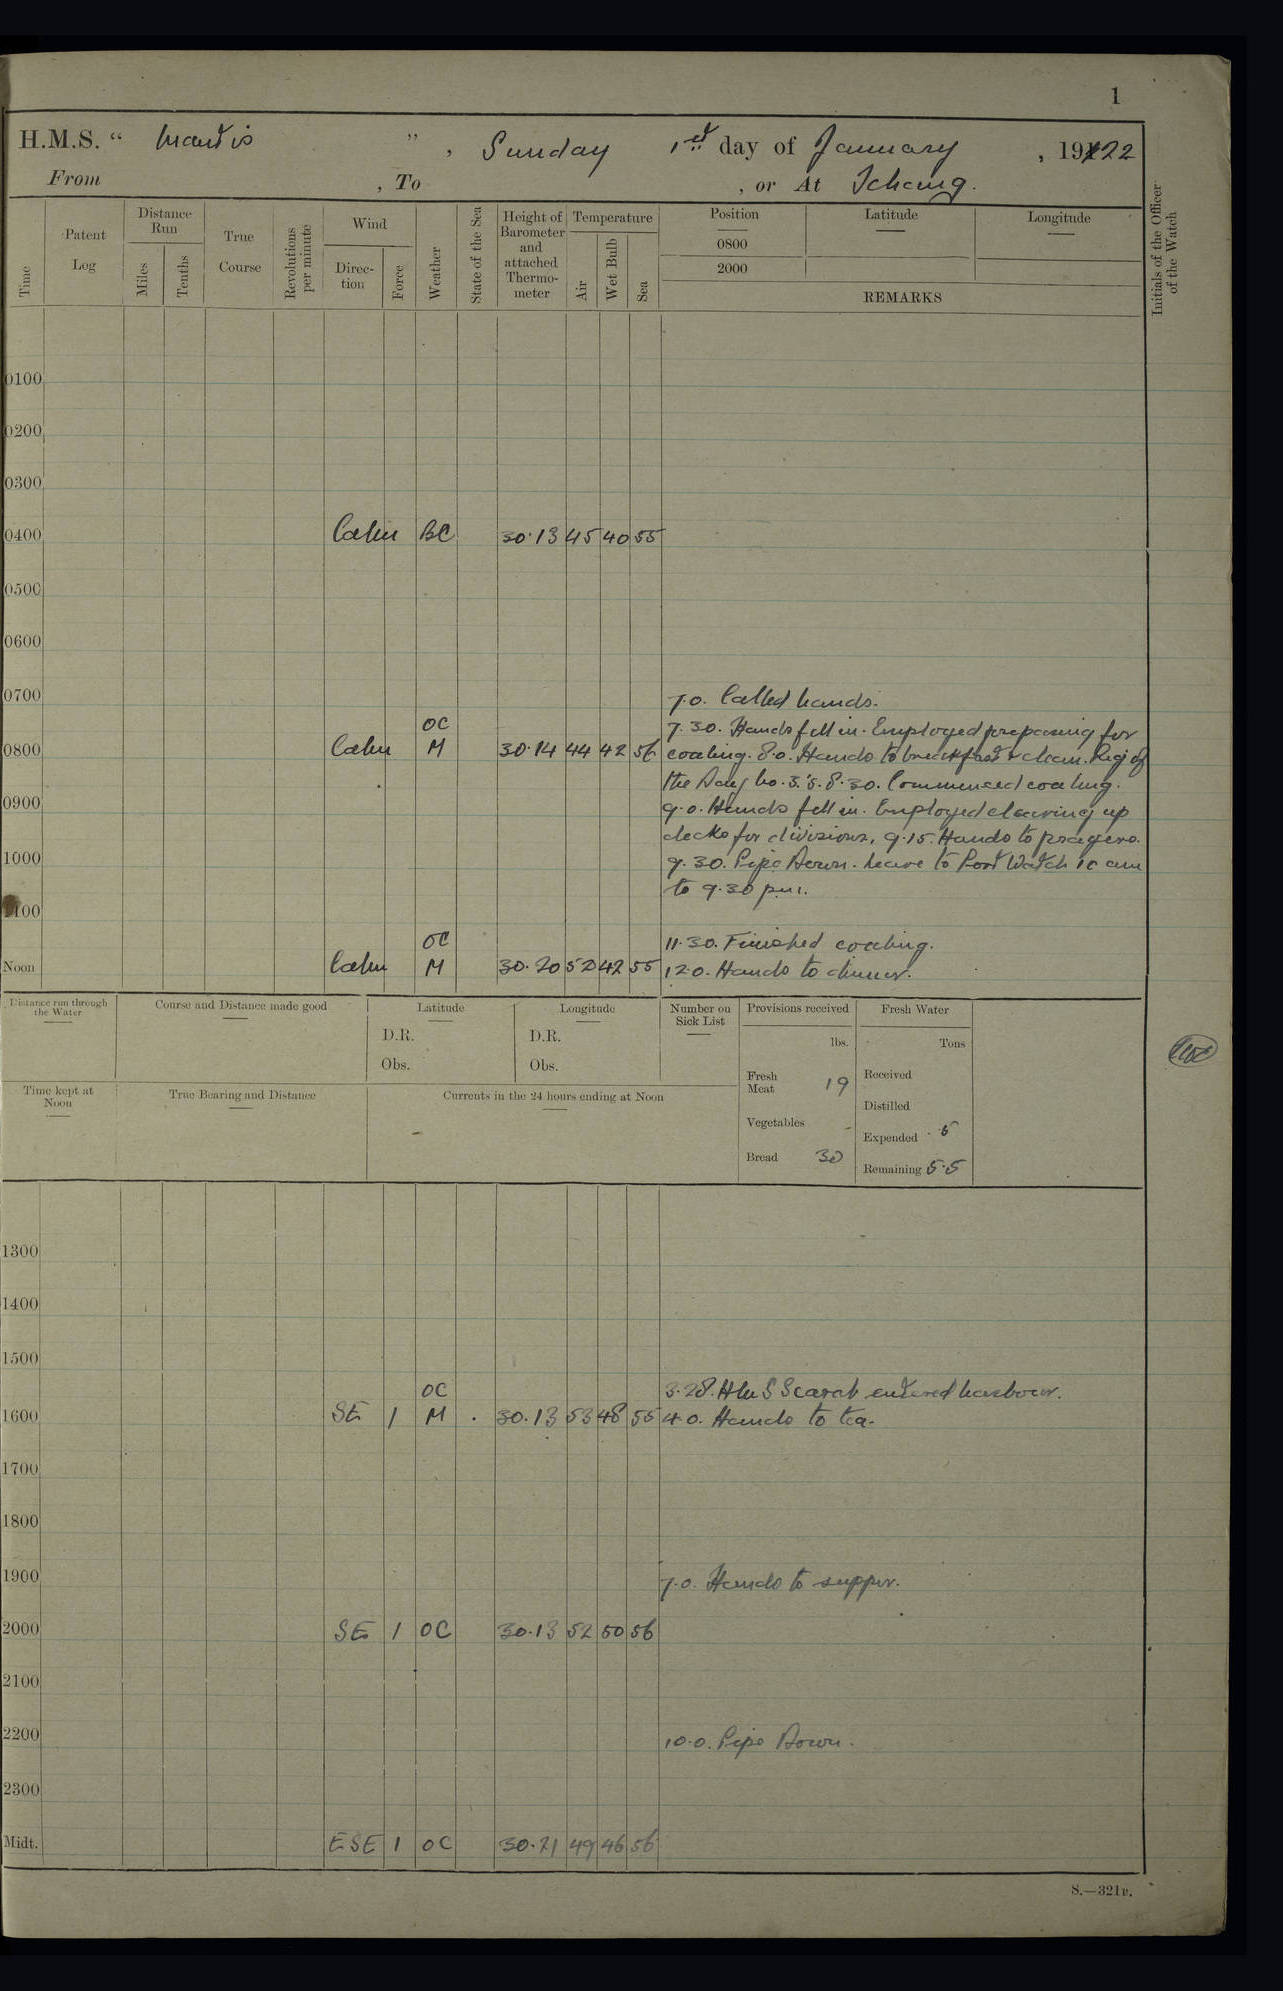 1
H.M.S. “ Mantis ” , Sunday 1st day of January , 1922
From , To , or At Ichang.
Time Patent Log Distance Run Miles Tenths True Course Revolutions per minute Wind Direc-tion Force Weather State of the Sea Height of Barometer and attached Thermo-meter Temperature Air Wet Bulb Sea Position 0800 2000 Latitude Longitude
REMARKS
Initials of the Officer of the Watch
0100
0200
0300
0400 Calm BC 30.13 45 40 55
0500
0600
0700 7.0. Called hands.
OC 7.30. Hands fell in. Employed preparing for
0800 Calm M 30.14 44 42 56 coaling. 8.0. Hands to breakfast & clean. Rig of
the Day No. 3's. 8.30. Commenced coaling.
0900 9.0. Hands fell in. Employed clearing up
decks for divisions, 9.15. Hands to prayers.
1000 9.30. Pipe Down. Leave to Port Watch 10 am
to 9.30 p.m.
1100
OC 11.30. Finished coaling.
Noon Calm M 30.20 52 42 55 12.0. Hands to dinner.
Distance run through the Water Course and Distance made good Latitude Longitude Number on Sick List Provisions received Fresh Water
D.R. D.R. lbs. Tons
Obs. Obs. Fresh Meat 19 Received
Time kept at Noon True Bearing and Distance Currents in the 24 hours ending at Noon
Distilled
Vegetables - Expended .5
Bread 30 Remaining 5.5
1300
1400
1500
OC 3.28. HMS Scarab entered harbour.
1600 SE 1 M 30.13 53 48 55 4.0. Hands to tea.
1700
1800
1900 7.0. Hands to supper.
2000 SE 1 OC 30.13 52 50 56
2100
2200 10.0. Pipe Down.
2300
Midt. ESE 1 OC 30.21 49 46 56
S.—321v.